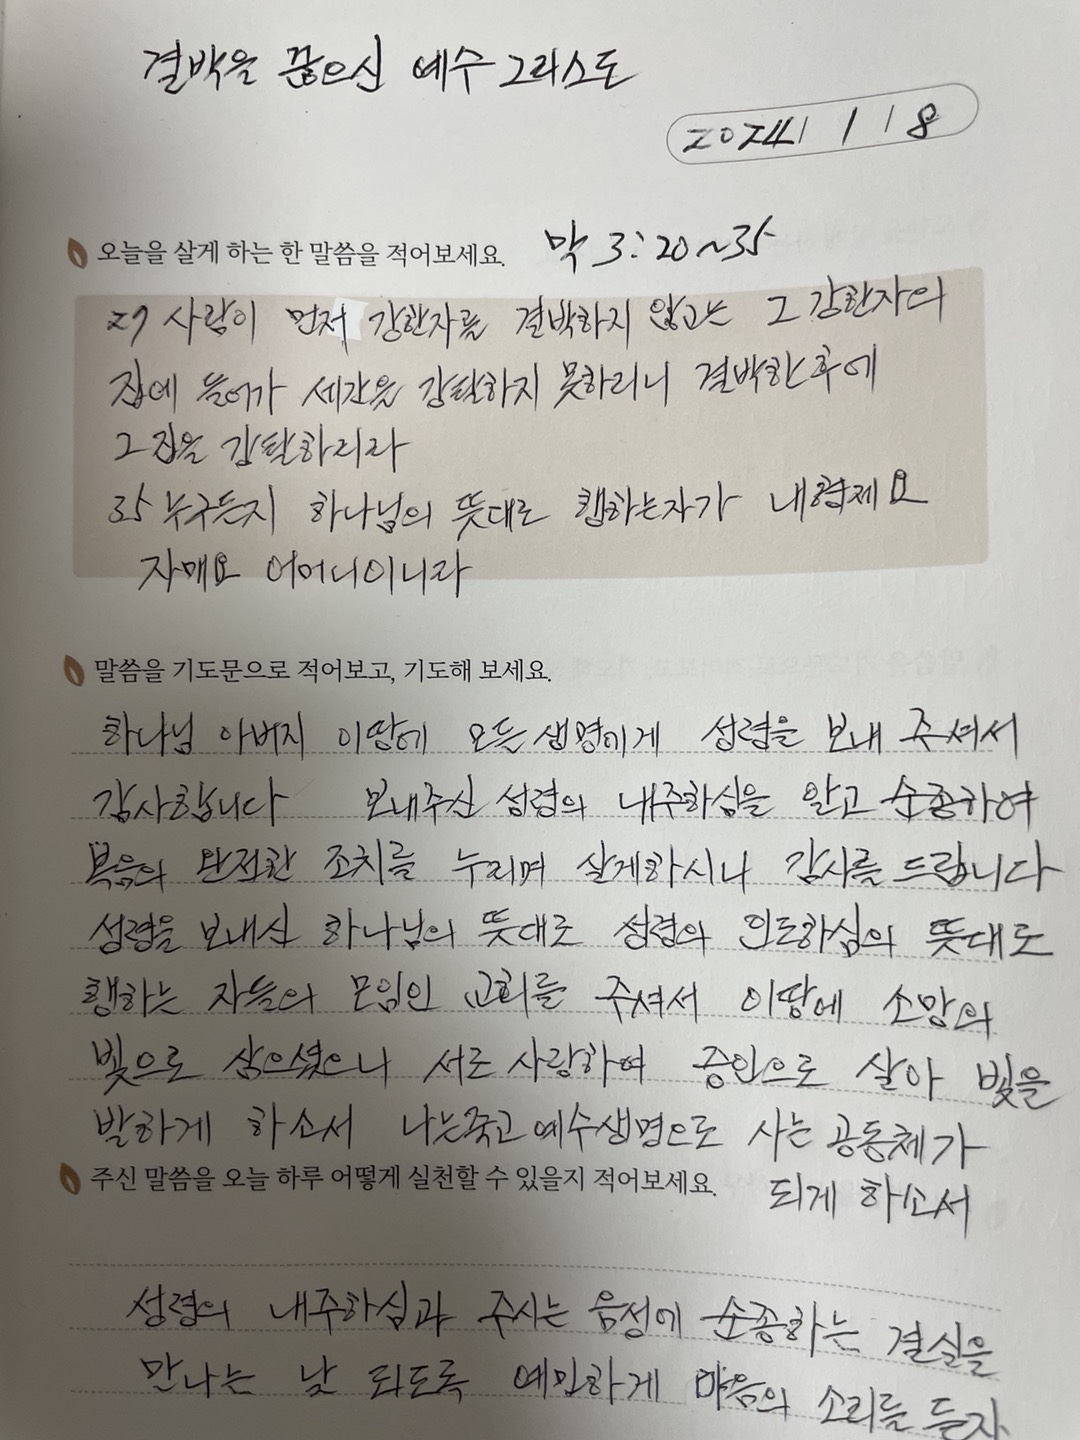 결박을 끊으신 예수 그리스도
2024 1 18
오늘을 살게 하는 한 말씀을 적어보세요. 막 3:20~35
27 사람이 먼저 강한자를 결박하지 않고는 그 강한자의
집에 들어가 세간을 강탈하지 못하리니 결박한 후에
그 집을 강탈하리라
35 누구든지 하나님의 뜻대로 행하는자가 내형제요
자매요 어머니이니라
말씀을 기도문으로 적어보고, 기도해 보세요.
하나님 아버지 이땅에 모든 생명에게 성령을 보내 주셔서
감사합니다 보내주신 성령의 내주하심을 알고 순종하여
복음의 완전한 조치를 누리며 살게하시니 감사를 드립니다
성령을 보내신 하나님의 뜻대로 성령의 인도하심의 뜻대로
행하는 자들의 모임인 교회를 주셔서 이땅에 소망의
빛으로 삼으셨으니 서로 사랑하여 증인으로 살아 빛을
발하게 하소서 나는죽고 예수생명으로 사는 공동체가
되게 하소서
주신 말씀을 오늘 하루 어떻게 실천할 수 있을지 적어보세요.
성령의 내주하심과 주시는 음성에 순종하는 결실을
만나는 날 되도록 예민하게 마음의 소리를 듣자